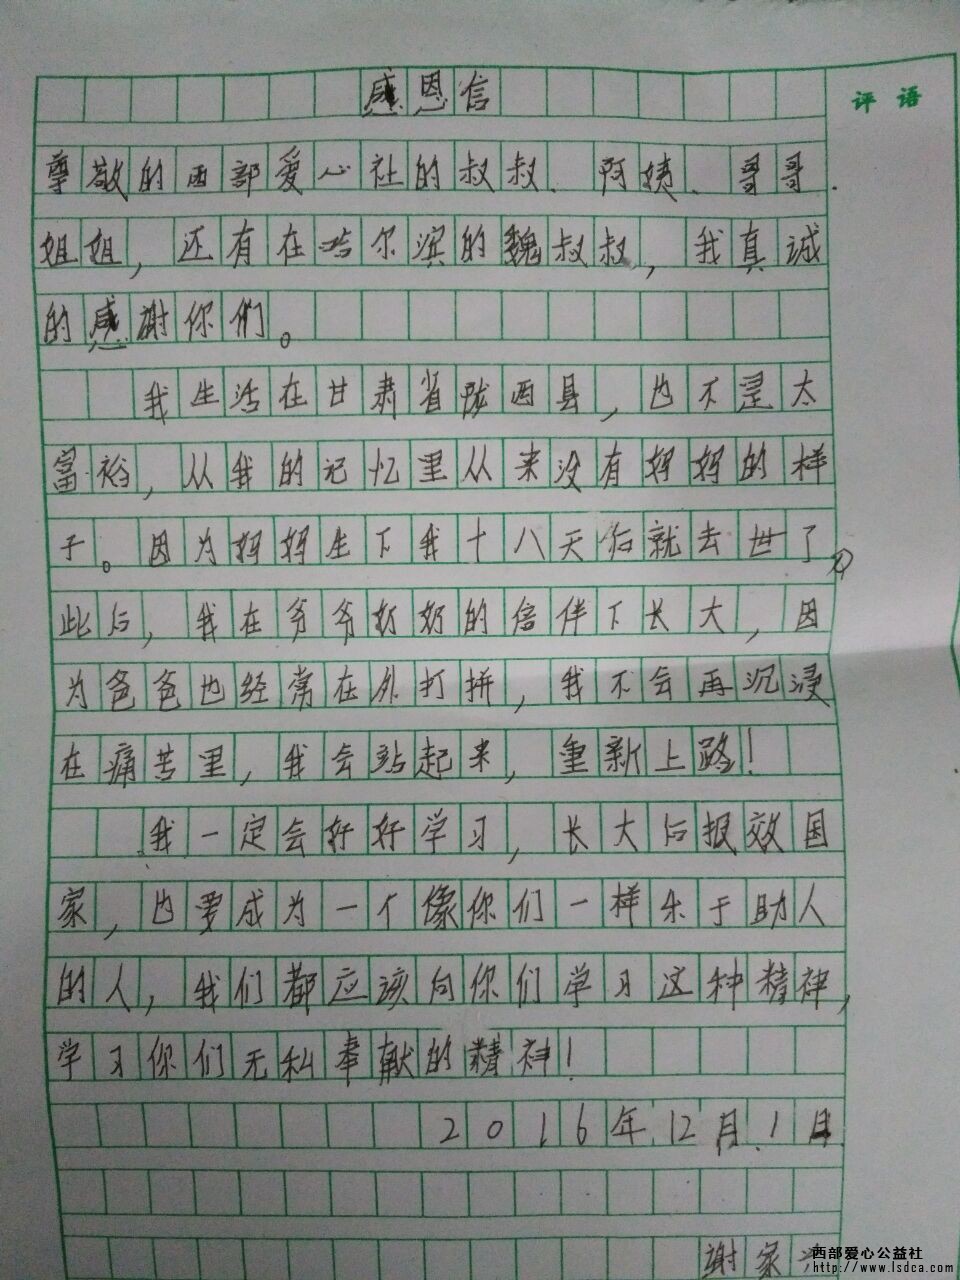 感恩信
评语
尊敬的西部爱心社的叔叔、阿姨、哥哥.
姐姐，还有在哈尔滨的魏叔叔，我真诚
的感谢你们。
我生活在甘肃省陇西县，也不是太
富裕，从我的记忆里从来没有妈妈的样
子。因为妈妈生下我十八天后就去世了。
此后，我在爷爷奶奶的倍伴下长大，因
为爸爸也经常在外打拼，我不会再沉浸
在痛苦里，我会站起来，重新上路！
我一定会好好学习，长大后报效国
家，也要成为一个像你们一样乐于助人
的人，我们都应该向你们学习这种精神，
学习你们无私奉献的精神！
2016年12月1日
谢家
西部爱心公益社
http://www.lsdca.com